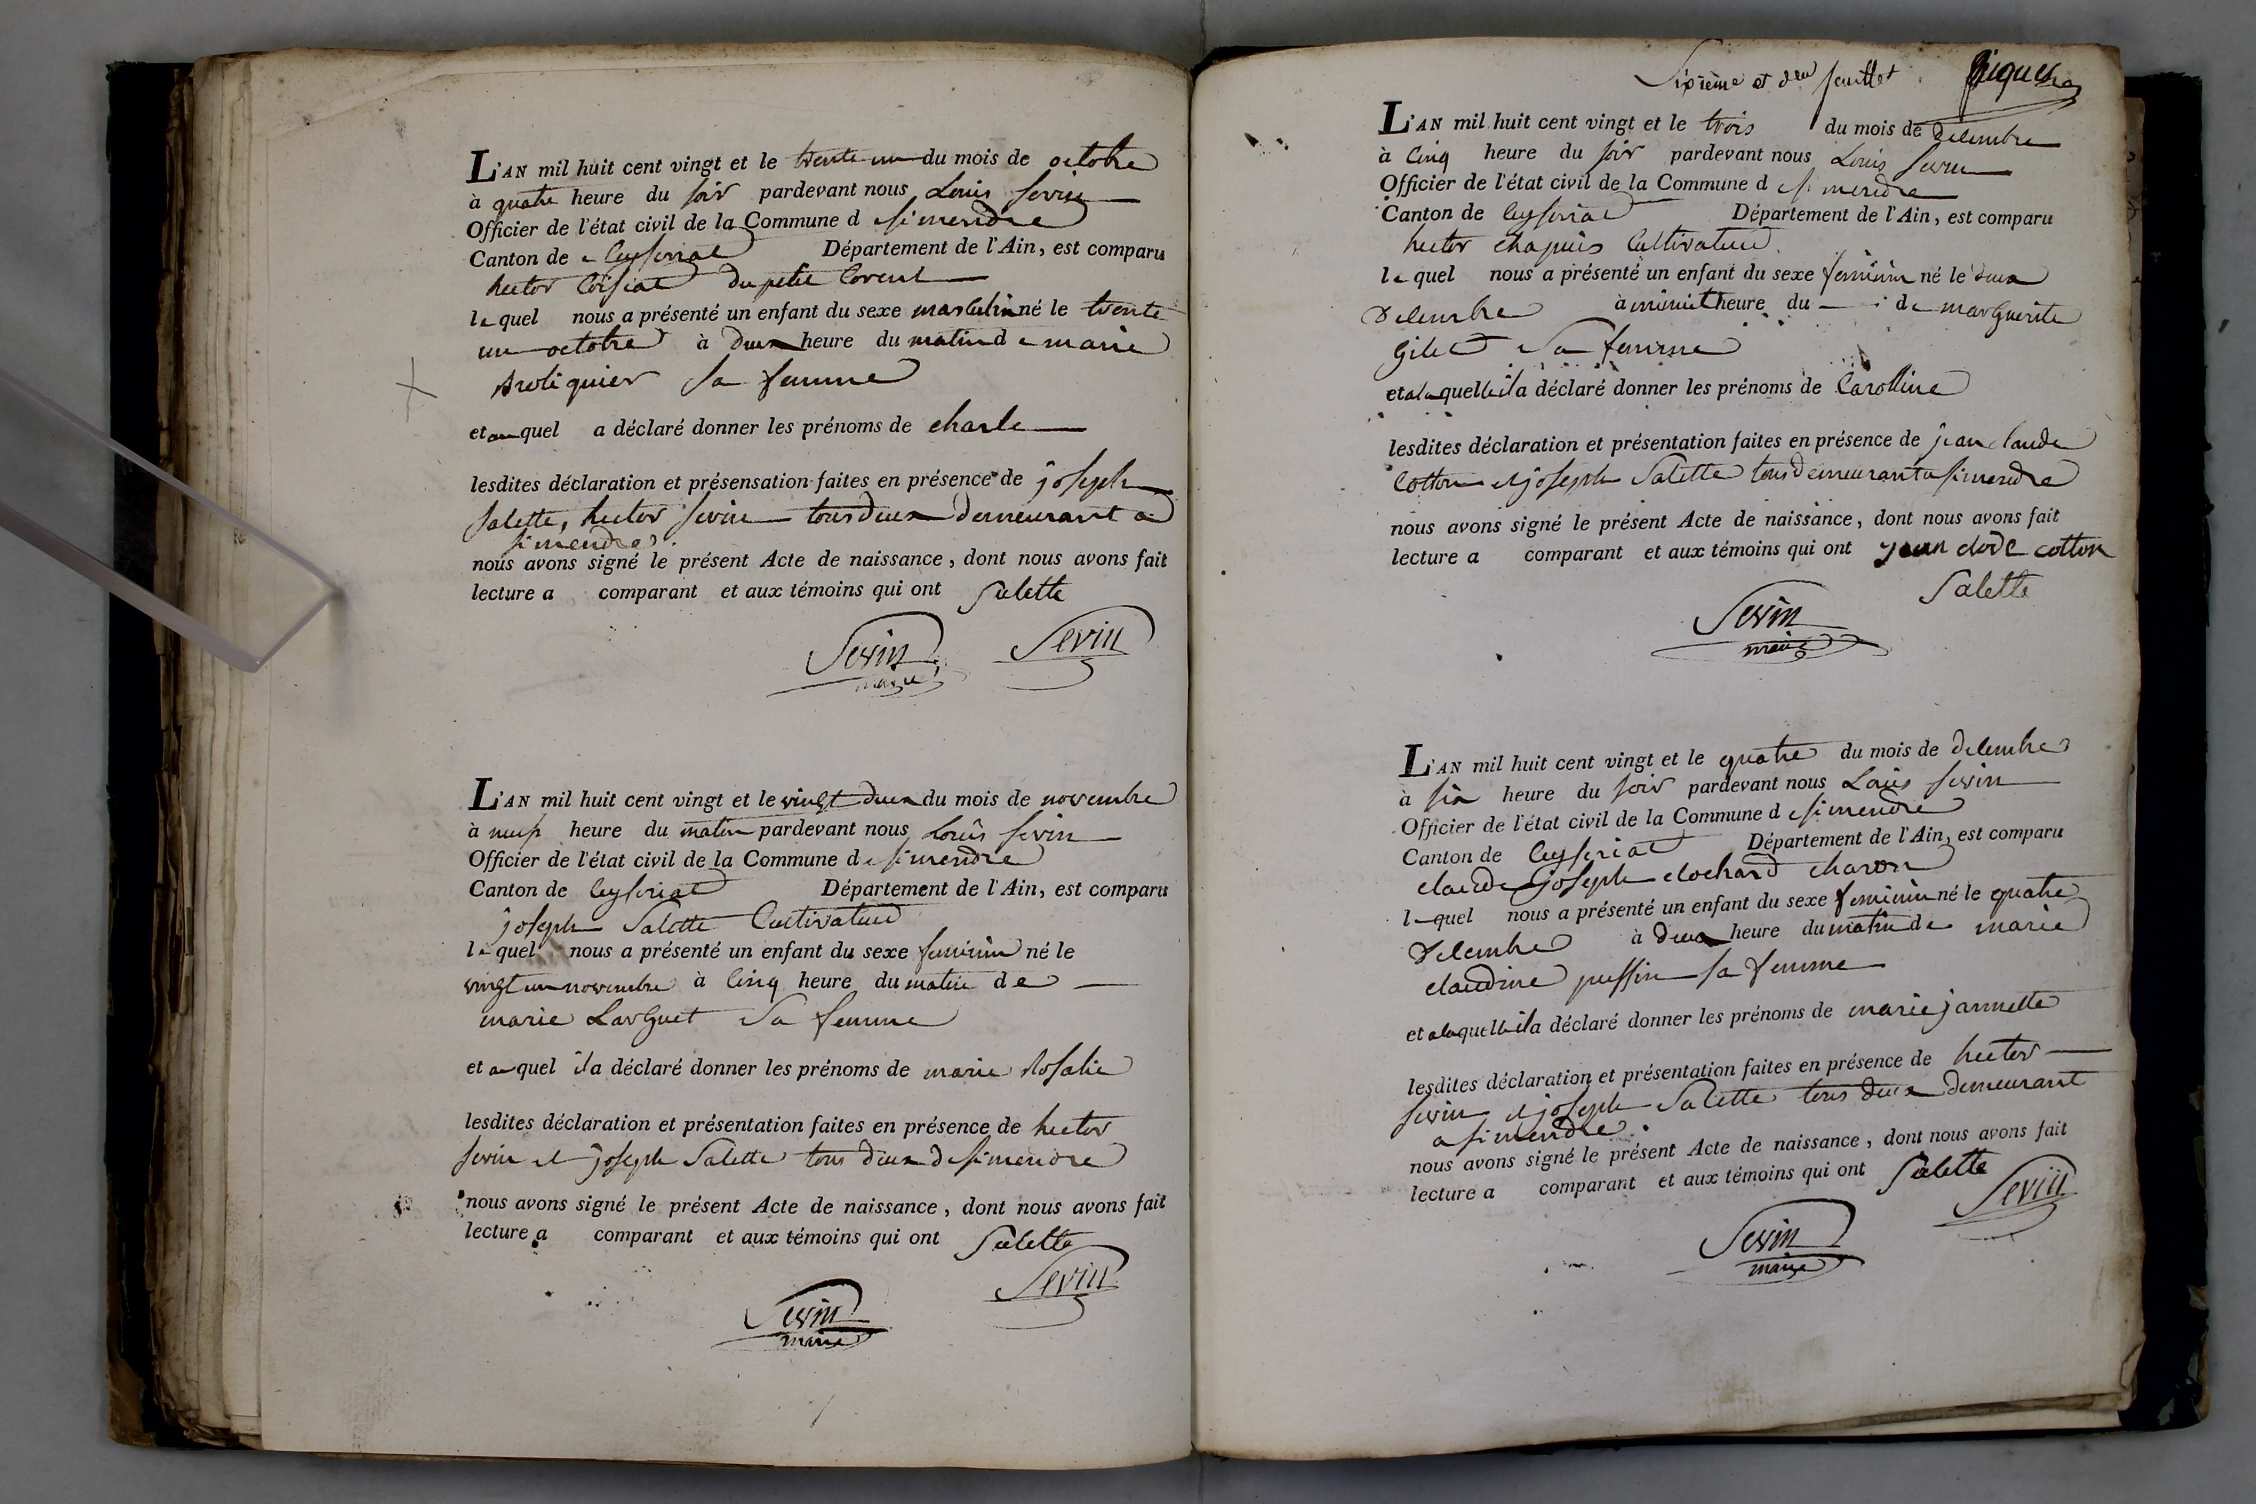 L'AN mil huit cent vingt et le trente un du mois de octobre
à quatre heure du soir pardevant nous Louis Sevin
Officier de l'état civil de la Commune d simendre
Canton de Ceyseriat Département de l'Ain, est comparu
hector Coisiat du petit Corent
le quel nous a présenté un enfant du sexe masculin né le trente
un octobre à deux heure du matin de marie
sa femme
et au quel a déclaré donner les prénoms de charle
lesdites déclaration et présensation faites en présence de joseph
Salette, hector Sevin tous deux demeurant a
simendre
nous avons signé le présent Acte de naissance, dont nous avons fait
lecture a comparant et aux témoins qui ont Salette
Sevin Sevin
maire
L'AN mil huit cent vingt et le vingt deux du mois de novembre
à neuf heure du matin pardevant nous Louis Sevin
Officier de l'état civil de la Commune de simendre
Canton de Ceyseriat Département de l'Ain, est comparu
joseph Salette Cultivateur
le quel nous a présenté un enfant du sexe feminin né le
vingt un novembre à Cinq heure du matin de
marie Larguet sa femme
et a quel il a déclaré donner les prénoms de marie Rosalie
lesdites déclaration et présentation faites en présence de hector
Sevin et joseph Salette tous deux d simendre
nous avons signé le présent Acte de naissance, dont nous avons fait
lecture a comparant et aux témoins qui ont Salette
Sevin
Sevin
maire
Sixième et feuillet
L'AN mil huit cent vingt et le trois du mois de decembre
à Cinq heure du soir pardevant nous Louis Sevin
Officier de l'état civil de la Commune d simendre
Canton de Ceyseriat Département de l'Ain, est comparu
hector chapuis Cultivateur
le quel nous a présenté un enfant du sexe feminin né le deux
decembre à minuit heure du de marguerite
Gilet sa femme
et a laquelle il a déclaré donner les prénoms de Carolline
lesdites déclaration et présentation faites en présence de jean claude
Cotton et joseph Salette tous demeurant a simendre
nous avons signé le présent Acte de naissance, dont nous avons fait
lecture a comparant et aux témoins qui ont jean clode cotton
Salette
Sevin
maire
L'AN mil huit cent vingt et le quatre du mois de decembre
à six heure du soir pardevant nous Louis Sevin
Officier de l'état civil de la Commune d simendre
Canton de Ceyseriat Département de l'Ain, est comparu
claude joseph clochard charon
le quel nous a présenté un enfant du sexe feminin né le quatre
decembre à deux heure du matin de marie
claudine puffin sa femme
et a laquelle il a déclaré donner les prénoms de marie jannette
lesdites déclaration et présentation faites en présence de hector
Sevin et joseph Salette tous deux demeurant
a simendre.
nous avons signé le présent Acte de naissance, dont nous avons fait
lecture a comparant et aux témoins qui ont Salette
Sevin
Sevin
maire